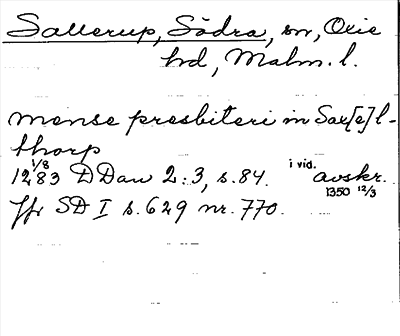 Sallerup, Södra, sn, Oxie
hd, Malm. l.
mense presbiteri in Sax[e]l-
thorp
12 1/8 83 DDan 2:3, s. 84. i vid. avskr. 1350 12/3
Jfr SD I s. 629 nr. 770.